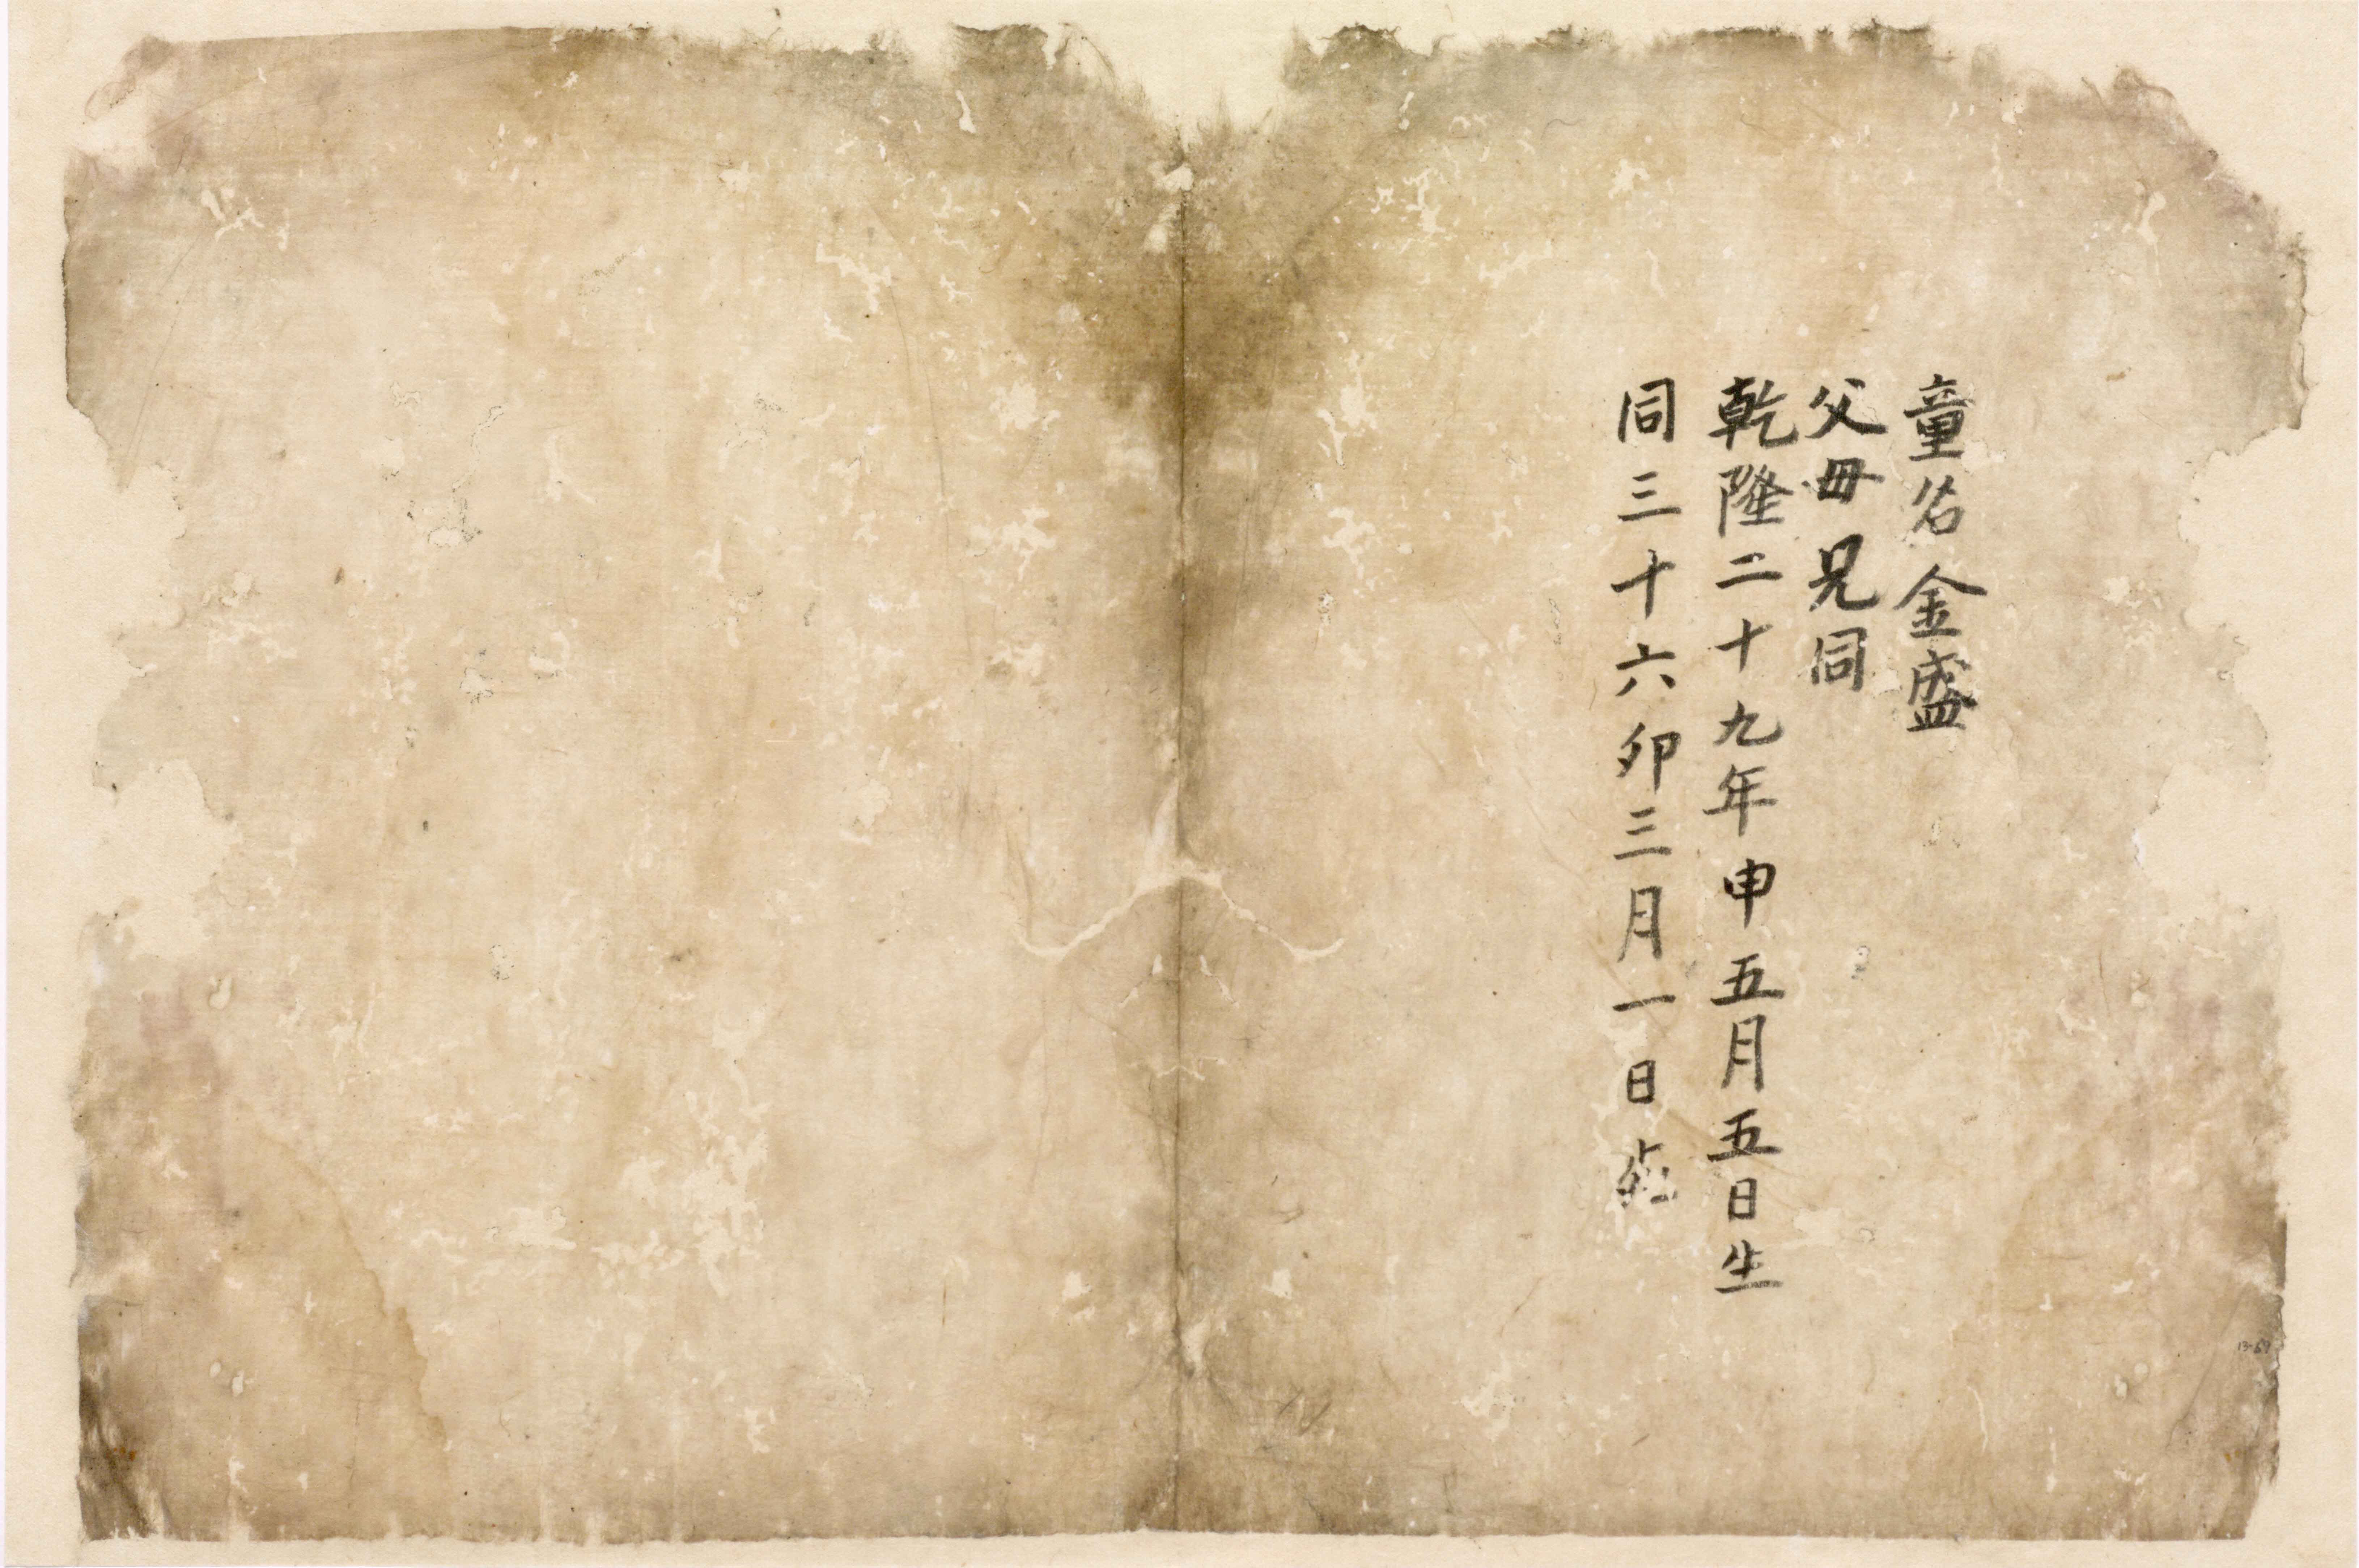 童名金盛
父毋兄同
乾隆二十九年申五月五日生
同三十六卯三月一日
13-67